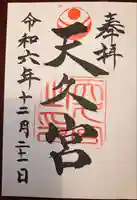 奉拝
天久宮
令和六年十二月二十二日